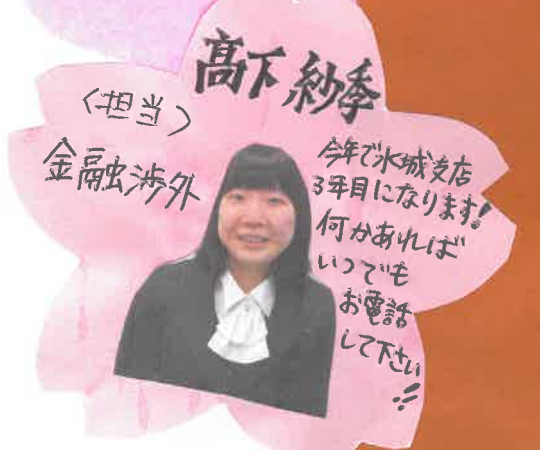 髙下 紗季
〈担当〉
金融渉外
今年で水城支店
3年目になります!
何かあれば
いつでも
お電話
して下さい
!!